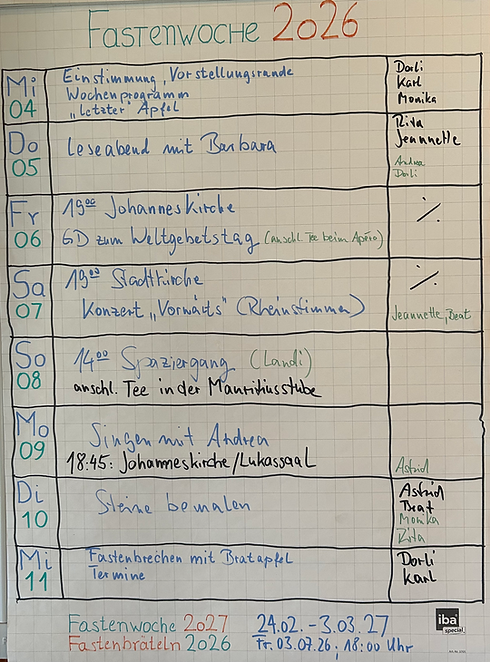 Fastenwoche 2026
Mi
04
Einstimmung, Vorstellungsrunde
Wochenprogramm
"Letzter" Apfel
Dorli
Karl
Monika
Do
05
Leseabend mit Barbara
Rita
Jeannette
Andrea
Dorli
Fr
06
19⁰⁰ Johanneskirche
GD zum Weltgebetstag (anschl. Tee beim Apéro)
·/.
Sa
07
19⁰⁰ Stadtkirche
Konzert „Vorwärts" (Rheinstimmen)
·/.
Jeannette, Beat
So
08
14⁰⁰ Spaziergang (Landi)
anschl. Tee in der Mauritiusstube
Mo
09
Singen mit Andrea
18:45: Johanneskirche/Lukassaal
Astrid
Di
10
Steine bemalen
Astrid
Beat
Monika
Rita
Mi
11
Fastenbrechen mit Bratapfel
Termine
Dorli
Karl
Fastenwoche 2027 24.02. - 3.03.27
Fastenbräteln 2026 Fr. 03.07.26, 18:00 Uhr
iba
special